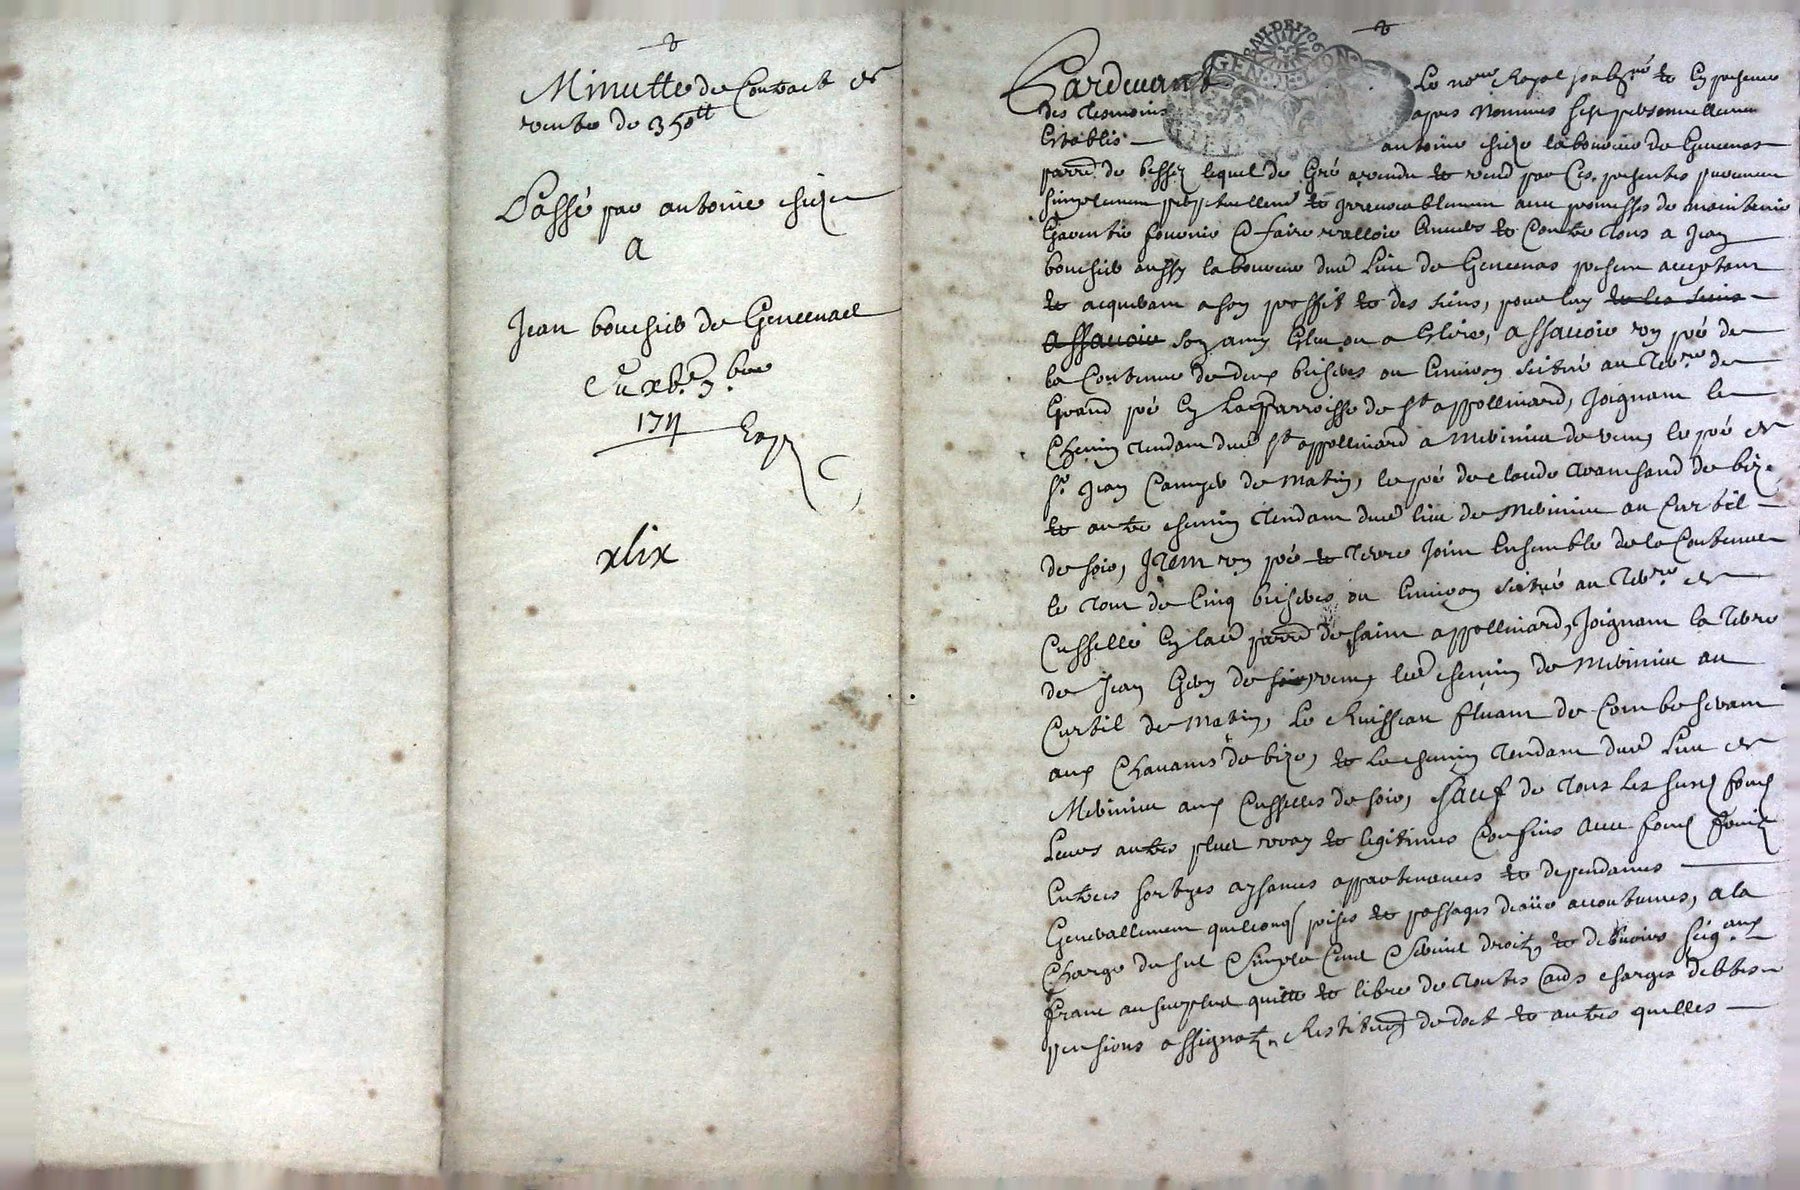 Minutte de Contract de
vente de 350tt
Passé par antoine chize
A
Jean bouchet de Gencenas
Du xbe 9.bre
1711
xlix
GEN DE LYON
Pardevant Le nore Royal soubzné et En presence
des tesmoins apres Nommes s'est personnellement
Establis antoine chize laboureur de Gencenas
parre de bessey lequel de Gré a vendu et vend par Ces presentes purement
simplement perpetuellemt et irrevocablement avec promesses de maintenir
Garentir fournir & faire valloir Envers et Contre tous a Jean
bouchet aussy laboureur dud Lieu de Gencenas present acceptant
et acquerant a son proffit et des siens, pour luy et les siens
assavoir son amy Eslu ou a Eslire, assavoir un pré de
la Contenue de deux bichets ou Environ scitué au terre de
Grand pré En La parroisse de st appollinard, Joignant le
Chemin tendant dud st appollinard a Merinieu de vent, le pré de
sr Jean Camyer de matin, le pré de claude marchand de bize
et autre chemin tendant dud lieu de Merinieu au Curtil
de soir, Item un pré et terre Joint Ensemble de la Contenue
le tout de Cinq bichets ou Environ scitué au terre de
Cusselle En lad parre de saint appollinard, Joignant la terre
de Jean Gery de soir vent, led chemin de Merinieu au
Curtil de matin, Le Ruisseau fluant de Combe
aux Chavants de bize, et Le chemin tendant dud Lieu de
Merinieu aux Cusselles de soir, sauf de tous Les susd fonds
Leurs autres plus vrays et legitimes Confins avec fond
Entrees sortyes aysances appartenances et dependances
Generallement quelconqs prises et passages deüe accoutumes, a la
Charge du sul Simple Cens Servis droitz et debvoirs seigaux
franc au surplus quitte et libre de toutes autres charges debtes
pensions assignatz Restitution de dot et autres quelles